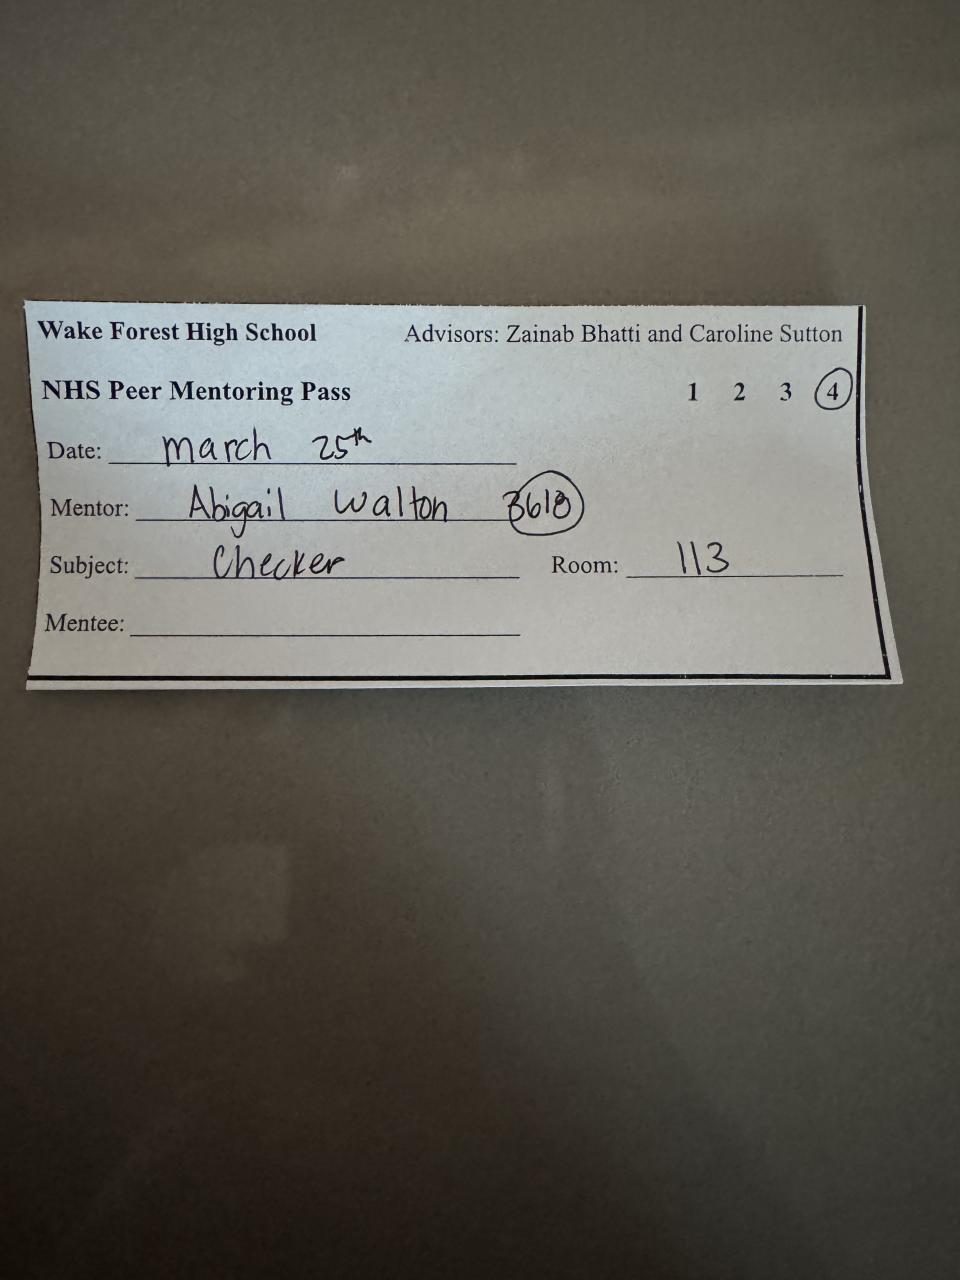 Wake Forest High School Advisors: Zainab Bhatti and Caroline Sutton
NHS Peer Mentoring Pass 1 2 3 4
Date: March 25th
Mentor: Abigail Walton 3618
Subject: Checker Room: 113
Mentee: